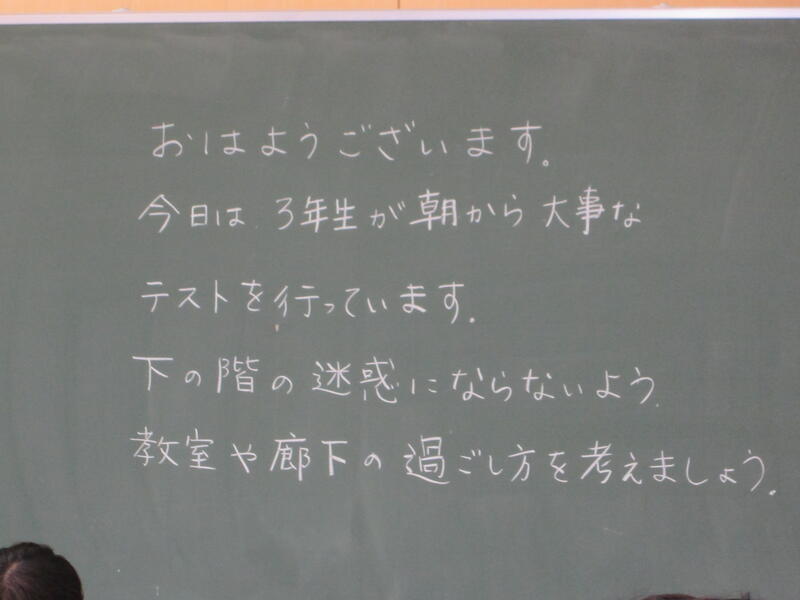 おはようございます。
今日は、3年生が朝から大事な
テストを行っています。
下の階の迷惑にならないよう、
教室や廊下の過ごし方を考えましょう。